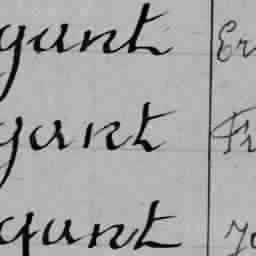 gant Er
gant Fr
gant Jo